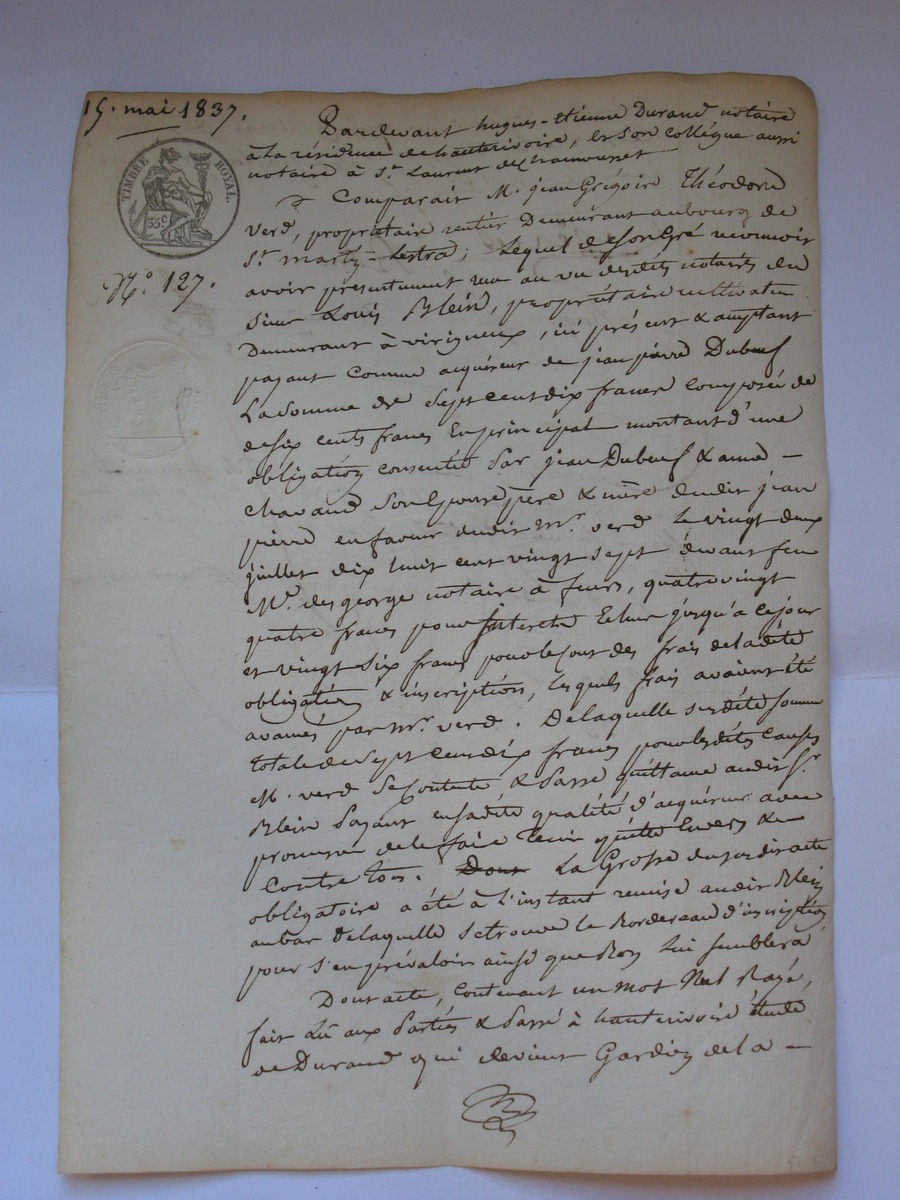 15. mai 1837.
TIMBRE ROYAL.
35c.
N.o 127.
Pardevant hugues-etienne Durand notaire
à La résidence de hauterivoire, et Son Collégue aussi
notaire à St. Laurent de chamousset
Comparait M. jean Grégoire Théodore
Verd, propriétaire rentier Demeurant au bourg de
St. martin-Lestra; Lequel de Son Gré reconnait
avoir présentement reçu au vu desdits notaires du
Sieur Louis Blein, propriétaire cultivateur
Demeurant à virigneux, ici présent & acceptant
payant Comme acquéreur de jean pierre Dubeuf
La Somme de Sept cent dix francs Composée de
de Six cents francs En principal montant d'une
obligation consentie par jean Dubeuf & anne -
Chavand Son Epouse père & mère dudit jean
pierre en faveur dudit Mr. verd Le vingt deux
juillet dix huit cent vingt Sept devant feu
Me. des george notaire à feurs, quatre vingt
quatre francs pour Interets Echus jusqu'à ce jour
et vingt Six francs pour le Cout des frais de la dite
obligation & inscription, lesquels frais avaient été
avancés par Mr. verd. De laquelle Susdite Somme
totale de Sept Cent dix francs pour lesdites Causes
M. verd Se Contente & Passe quittance audit Sr.
Blein payant en Sadite qualité d'acquéreur avec
promesse de le faire Tenir quitte Envers &
Contre tous. Dont La Grosse du Susdit acte
obligatoire a été à L'instant remise audit Blein
au bas de laquelle Se trouve le Bordereau d'inscription
pour S'en prévaloir ainsi que Bon Lui Semblera
Dont acte, Contenant un mot Nul Rayé,
fait Lû aux Parties & Passé à hauterivoire étude
de Durand qui devient Gardien de la -